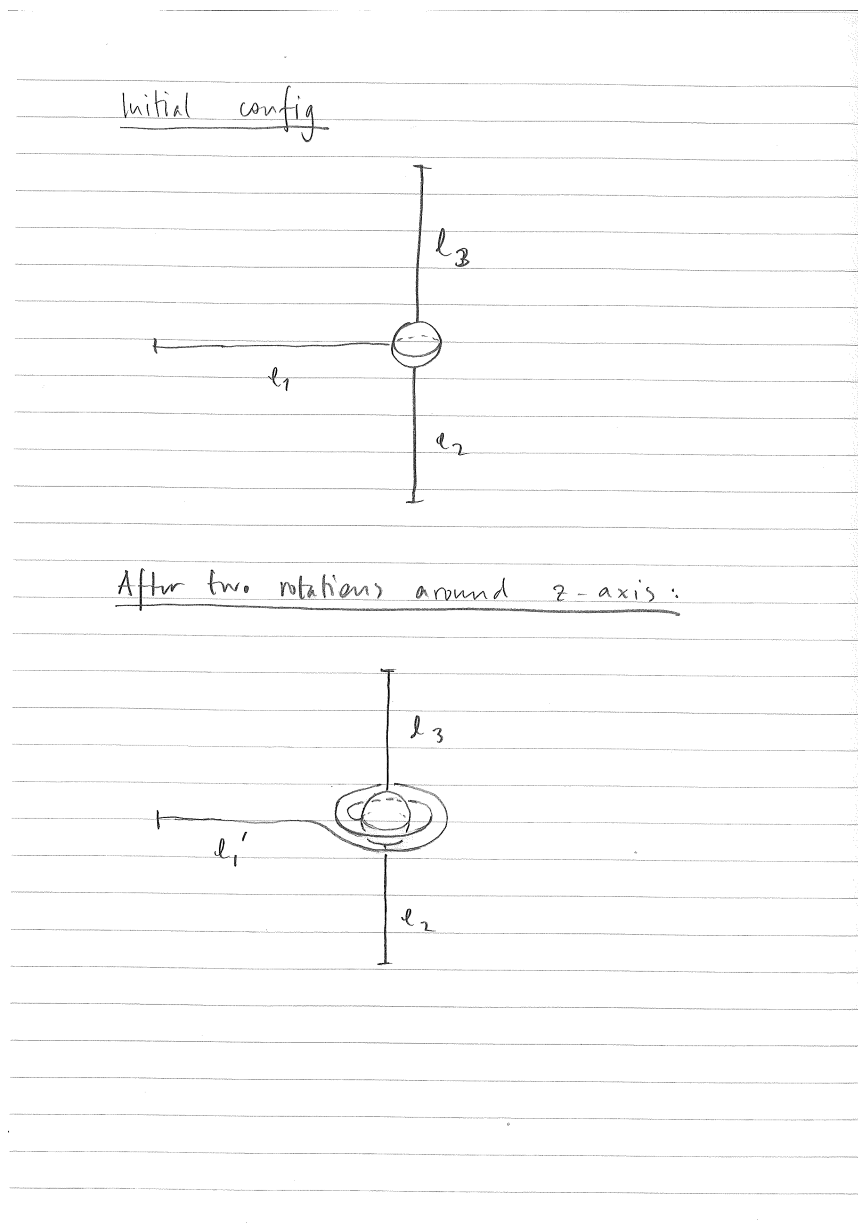 Initial config
l3
l1
l2
After two rotations around z-axis:
l3
l1'
l2